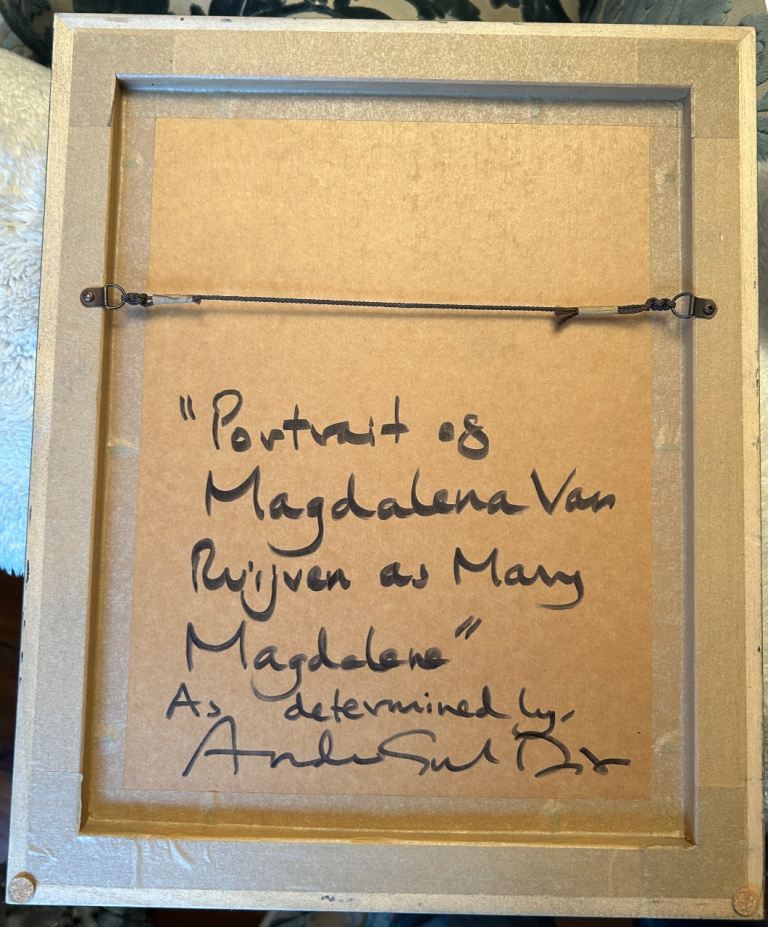 "Portrait of
Magdalena Van
Ruijven as Mary
Magdalene"
As determined by,